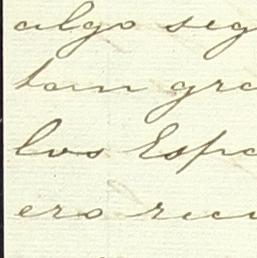 algo seg
tan gra
los Espa
ero recu